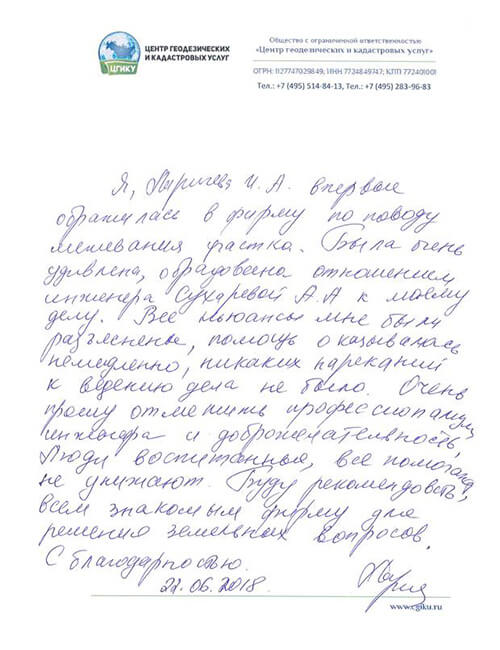 Общество с ограниченной ответственностью
ЦЕНТР ГЕОДЕЗИЧЕСКИХ
И КАДАСТРОВЫХ УСЛУГ
«Центр геодезических и кадастровых услуг»
ЦГИКУ
ОГРН: 1127747029849; ИНН 7724849747; КПП 772401001
Тел.: +7 (495) 514-84-13, Тел.: +7 (495) 283-96-83
Я, И. А. впервые
обратилась в фирму по поводу
межевания участка. Была очень
удивлена, обрадована отношением
инженера Сухаревой А.А к моему
делу. Все нюансы мне были
разъяснены, помощь оказывалась
немедленно, никаких нареканий
к ведению дела не было. Очень
прошу отметить профессионализм
инженера и доброжелательность,
Люди воспитанные, все
не унижают. Буду рекомендовать
всем знакомым фирму для
решения земельных вопросов.
С благодарностью.
22.06.2018.
www.cgiku.ru